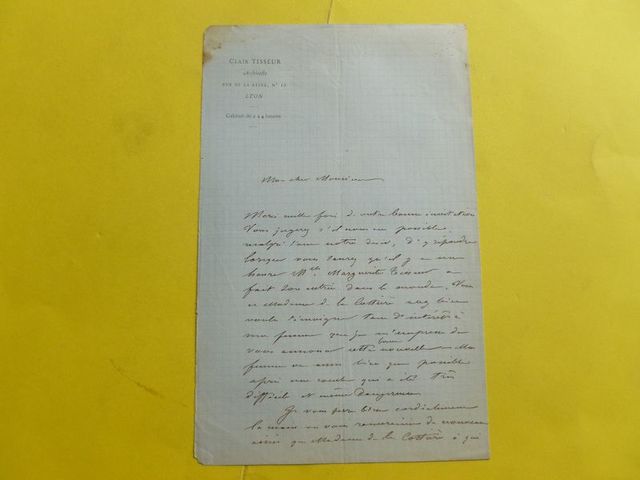 CLAIR TISSEUR
Architecte
RUE DE LA REINE, Nº
LYON
Cabinet de 2 à 4 heures
Mon cher Monsieur
Merci mille fois de votre bonne invitation
Vous jugerez s'il nous est possible,
malgré tout notre désir, d'y répondre
lorsque vous saurez qu'il y a une
heure Mlle Marguerite Tisseur a
fait son entrée dans le monde. Vous
et Madame de la Cottière avez bien
voulu témoigner tant d'intérêt à
ma femme que je m'empresse de
vous annoncer cette bonne nouvelle. Ma
femme va aussi bien que possible
après une couche qui a été très
difficile et même dangereuse.
Je vous serre bien cordialement
la main en vous remerciant de nouveau
ainsi que Madame de la Cottière à qui